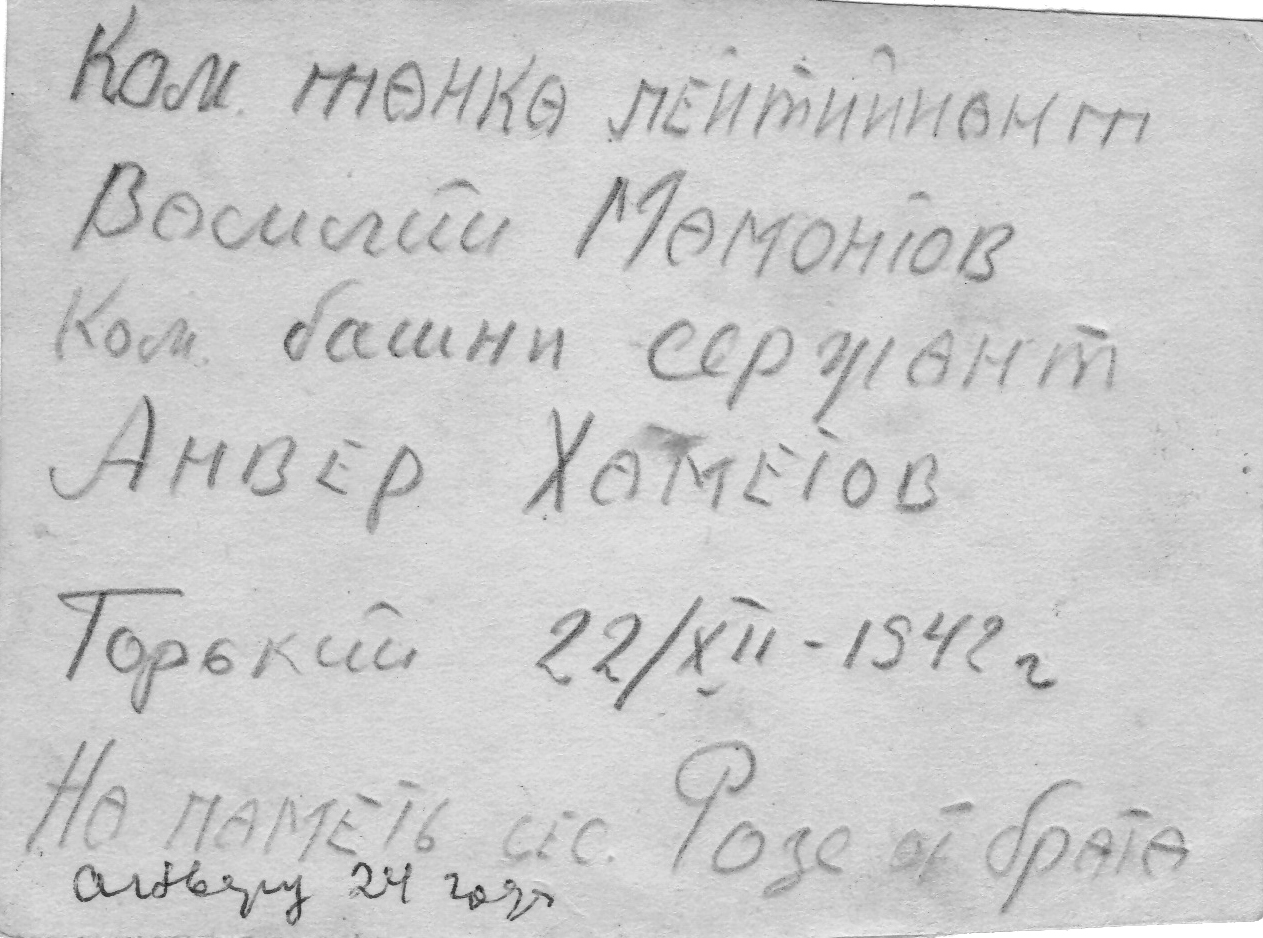 Ком. танка лейтийнант
Василий Мамонтов
Ком. башни сержант
Анвер Хаметов
Горький 22/XII-1942 г
На паметь сес. Розе от брата
анверу 24 года